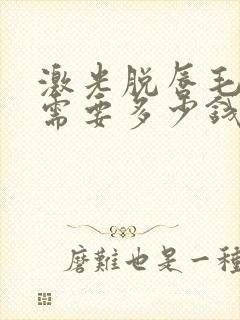 激光脱唇毛
需要多少钱
磨難也是一種